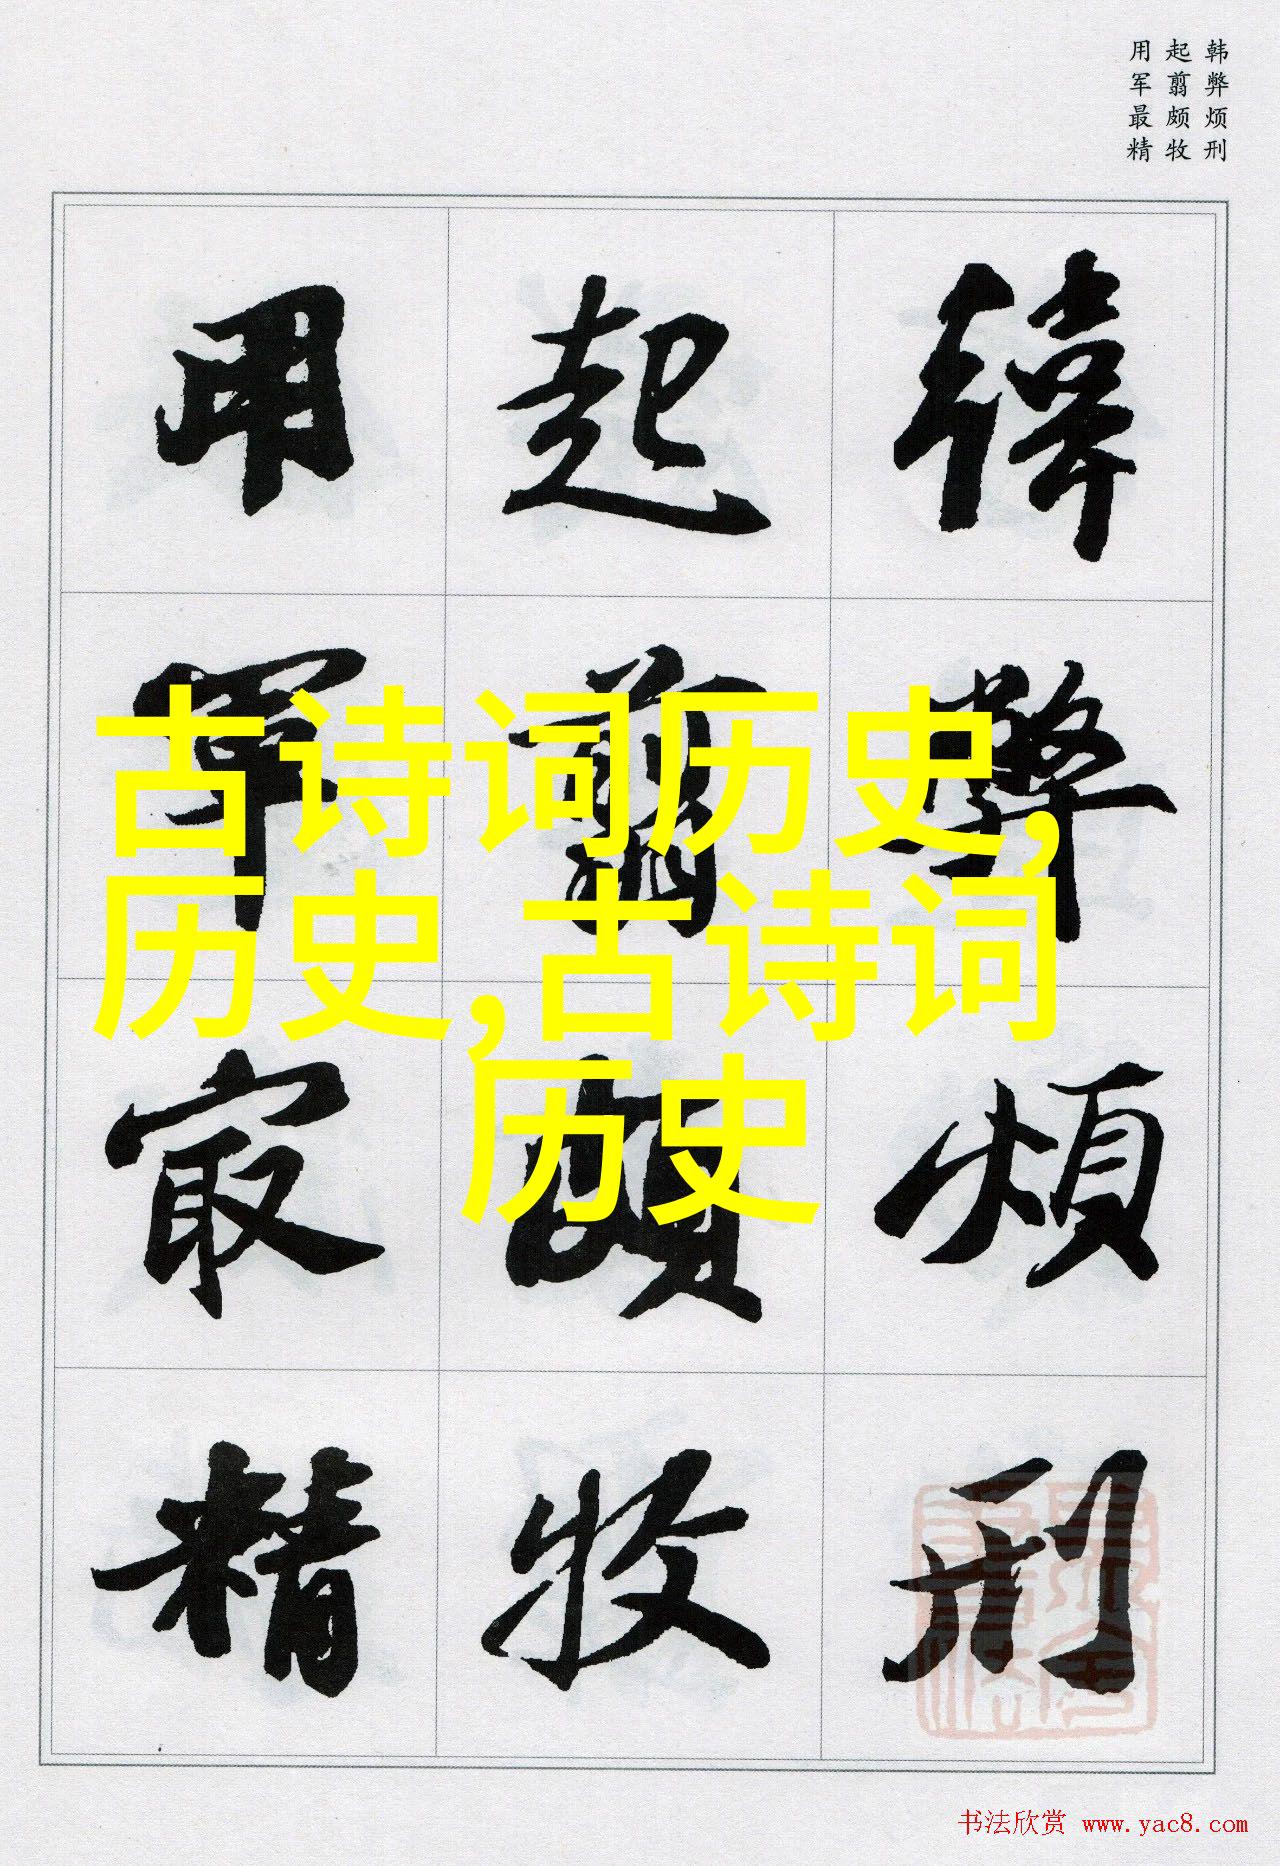 韩弊烦刑
起翦颇牧
用军最精
韓弊煩刑
起翦頗牧
用軍最精
古诗词历史,
历史,古诗词
历史
书法欣赏 www.yac8.com